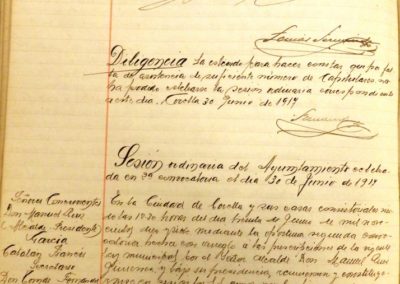 Diligencia La extiendo para hacer constar que por fal
ta de asistencia de suficiente número de Capitulares no
ha podido celebrarse la sesión ordinaria correspondiente
a este dia. Corella 30 Junio de 1917
Sesión ordinaria del Ayuntamiento celebra
da en 2ª convocatoria el dia 30 de Junio de 1917
Señores Concurrentes
Don Manuel Ruiz
Alcalde Presidente
García
Catalan Francés
Secretario
Don Conde Fernando
En la Ciudad de Corella y sus casas consistoriales
las 10,30 horas del dia treinta de Junio de mil nove
cientos diez y siete mediante la oportuna segunda convo
catoria hecha con arreglo a las prescripciones de la vigente
ley municipal por el Señor Alcalde Don Manuel Ruiz
y bajo su presidencia, reunieron y constituye